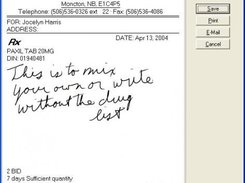 Moncton, NB, E1C4P5
Telephone: (506)536-0326 ext 22 Fax: (506)536-4086
FOR: Jocelyn Harris
ADDRESS:
Rx DATE: Apr 13, 2004
PAXIL TAB 20MG
DIN: 01940481
This is to mix
your own or write
without the drug
list
2 BID
7 days Sufficient quantity
Save
Print
E-Mail
Cancel